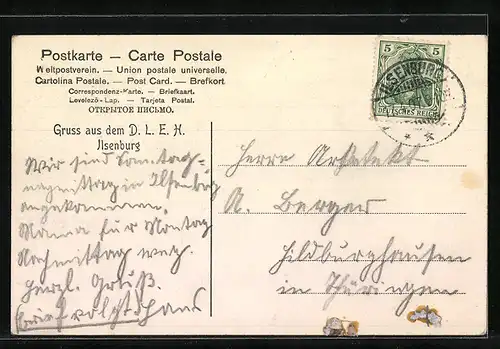 Postkarte — Carte Postale
Weltpostverein. — Union postale universelle.
Cartolina Postale. — Post Card. — Brefkort
Correspondenz-Karte. — Briefkaart.
Levelező-Lap. — Tarjeta Postal.
ОТКРЫТОЕ ПИСЬМО.
Gruss aus dem D. L. E. H.
Ilsenburg
Wir sind Sonntag-
nachmittag in Ilsenburg
angekommen.
Mama fur Montag
Nachmittag weg.
Herzl. Gruß.
Brief folgt Hans
5 5
ILSENBURG
DEUTSCHES REICH
Herrn Architekt
A. Berger
Hildburghausen
in Thüringen